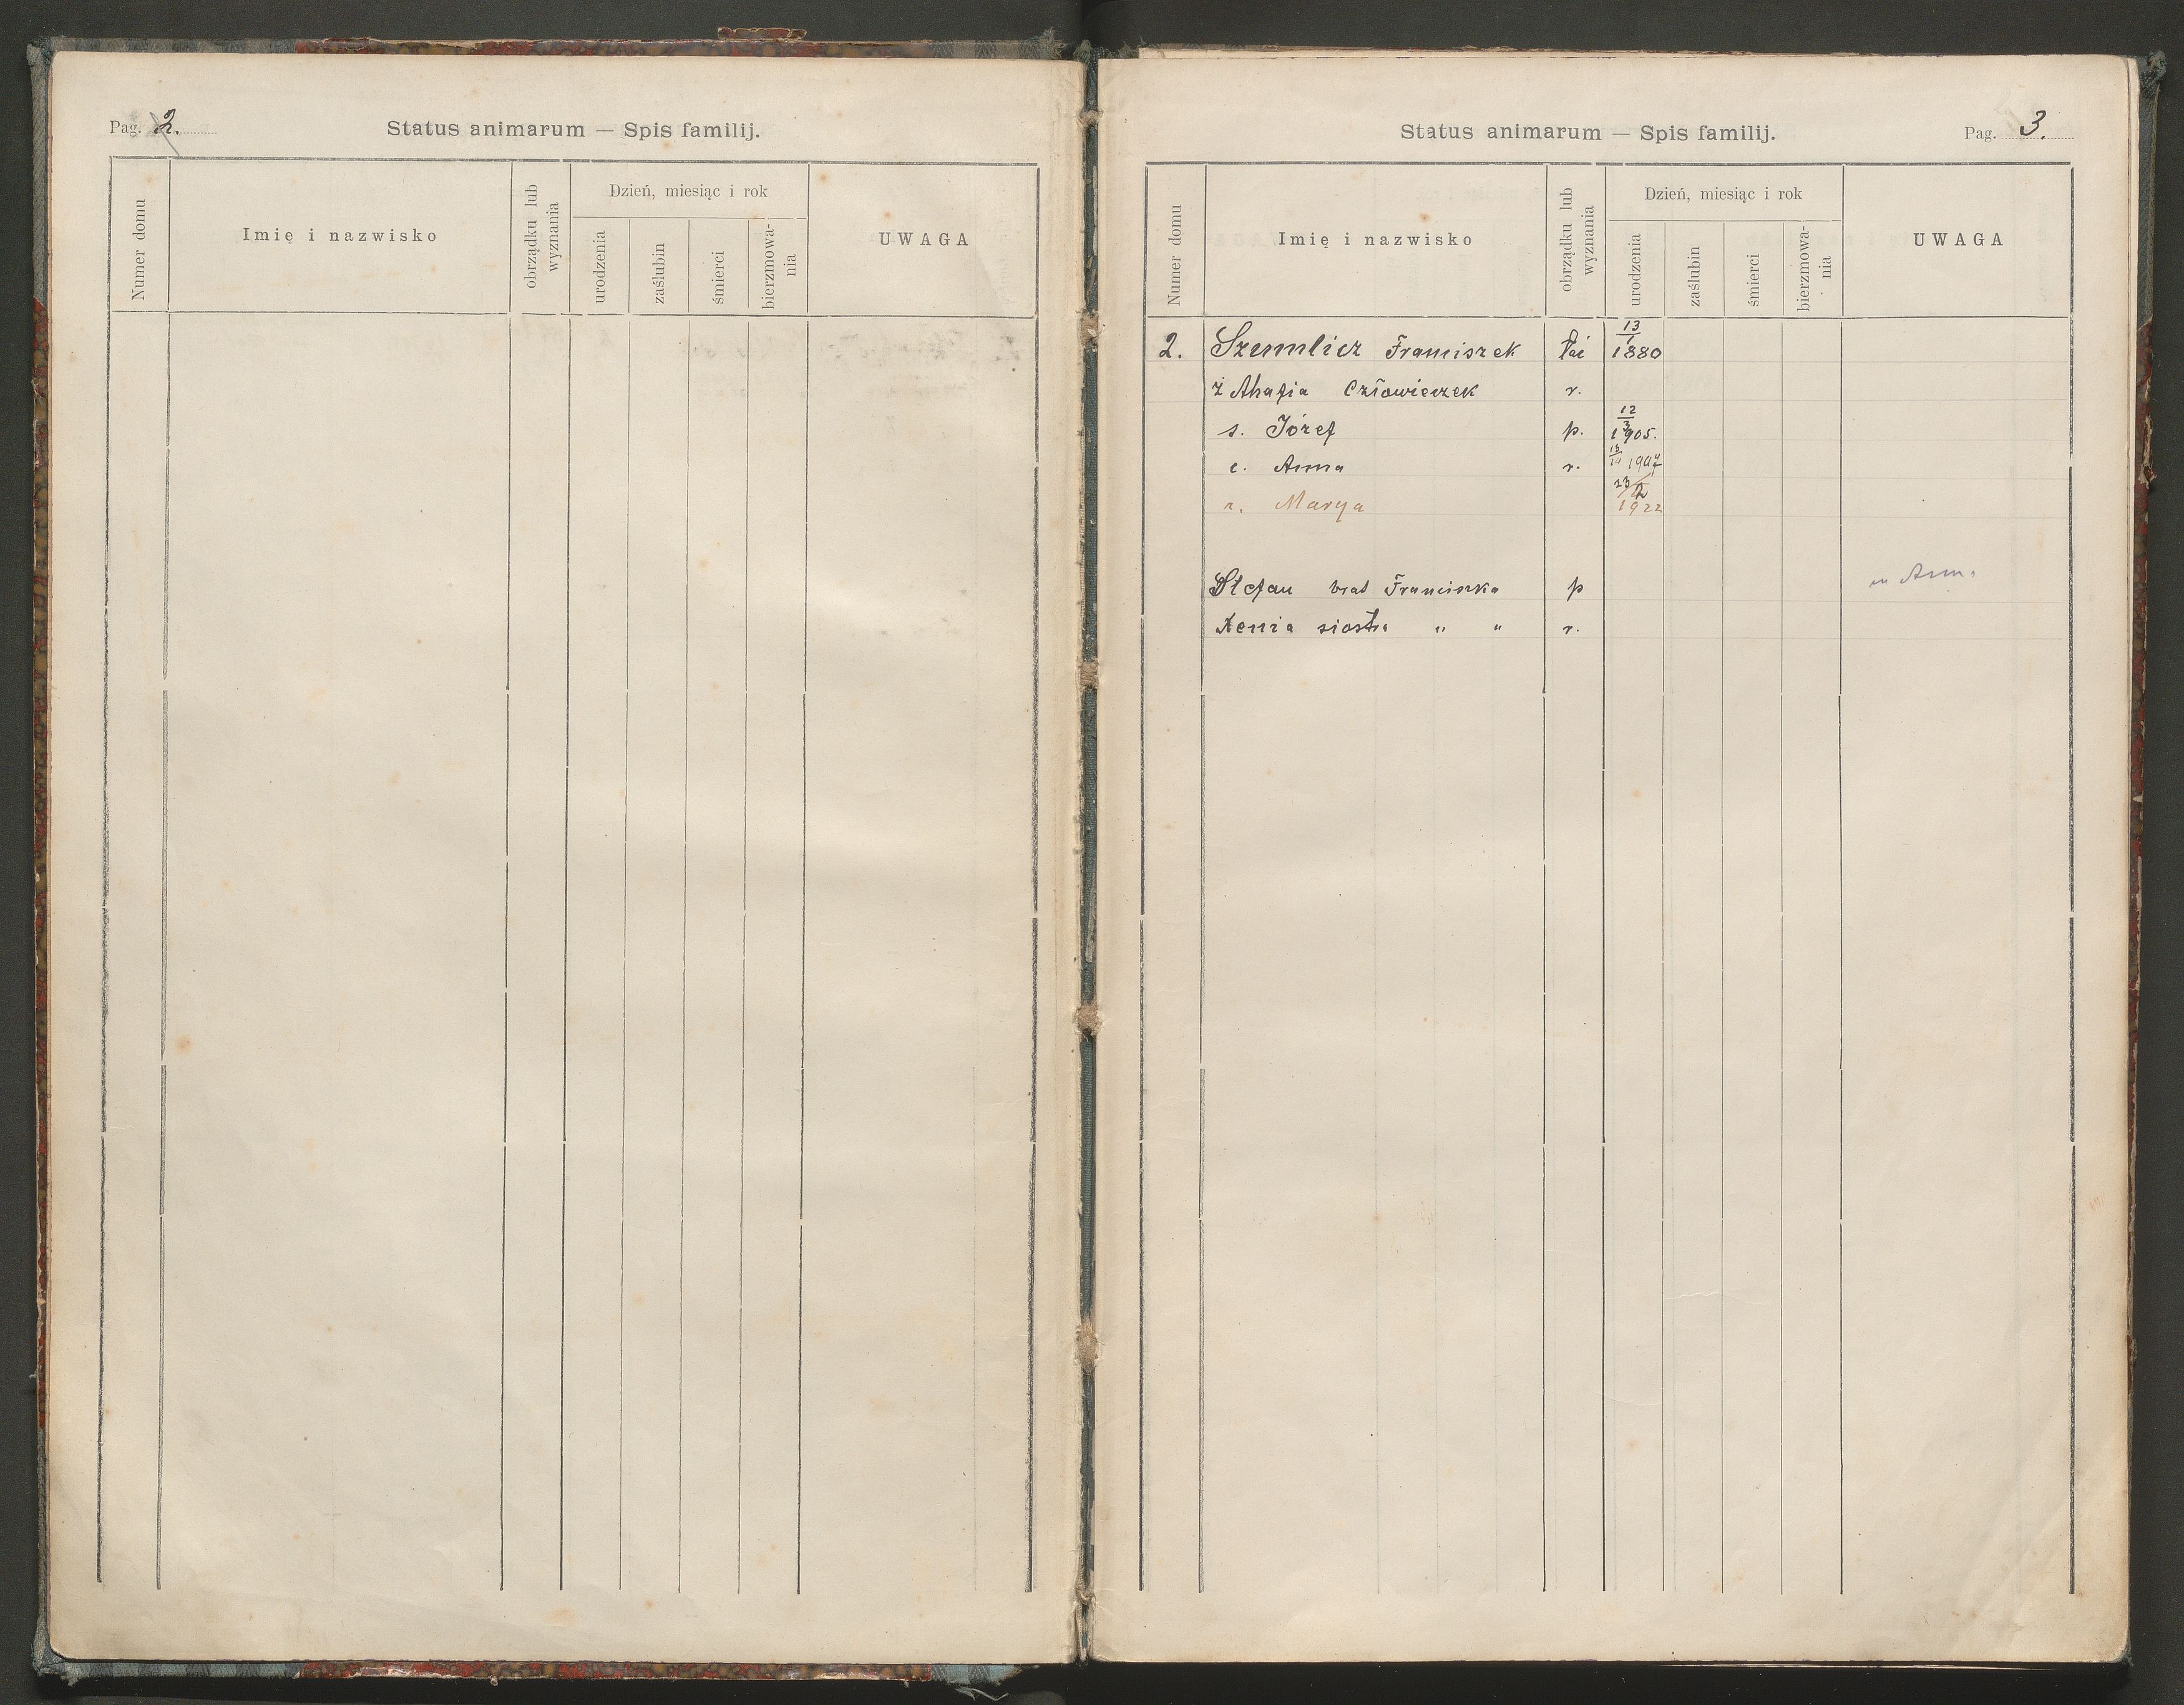 Pag. 2.
Status animarum — Spis familij.
Numer domu
Imię i nazwisko
obrządku lub wyznania
Dzień, miesiąc i rok
urodzenia
zaślubin
śmierci
bierzmowa-
nia
UWAGA
Status animarum — Spis familij.
Pag. 3.
Numer domu
Imię i nazwisko
obrządku lub wyznania
Dzień, miesiąc i rok
urodzenia
zaślubin
śmierci
bierzmowa-
nia
UWAGA
2. Szemlicz Franciszek 13/1 1880
ż Ahafia Człowieczek r.
s. Józef p. 12/3 1905.
c. Anna r. 1907
Marya 23/2 1922
Stefan brat Franciszka p
Xenia siostra " " r.
Anna